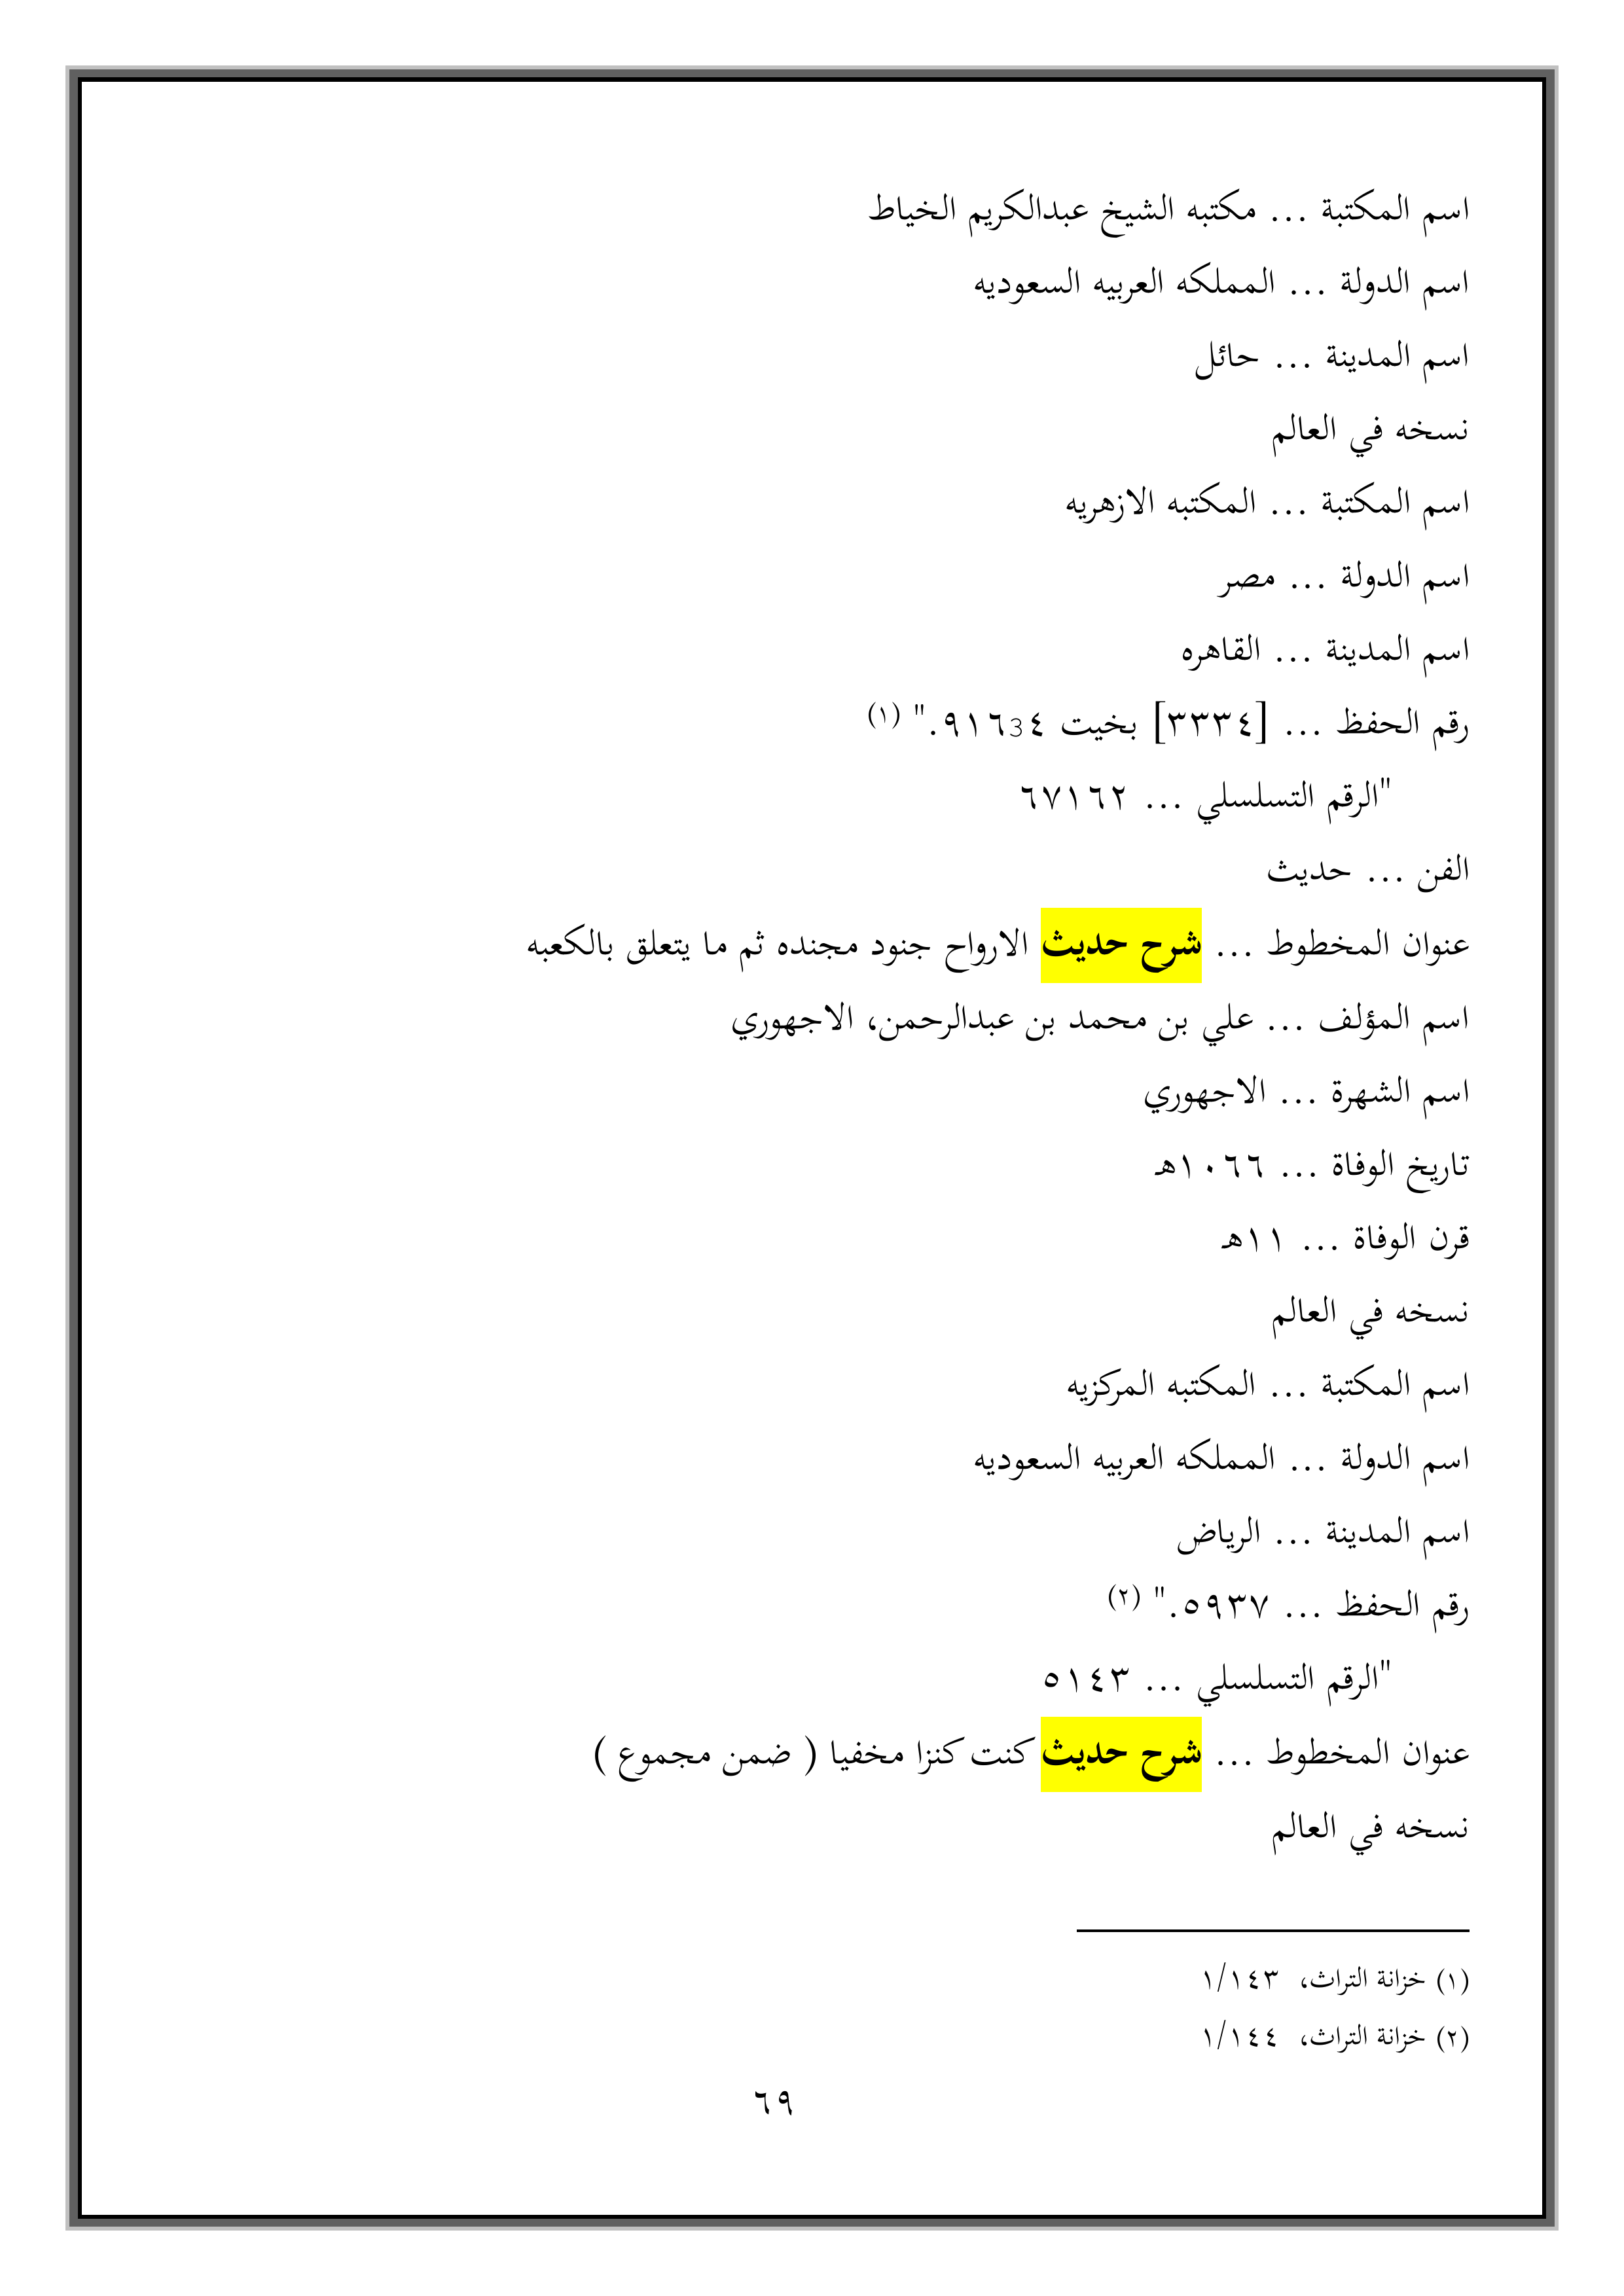 اسم المكتبة ... مكتبه الشيخ عبدالكريم الخياط
اسم الدولة ... المملكه العربيه السعوديه
اسم المدينة ... حائل
نسخه في العالم
اسم المكتبة ... المكتبه الازهريه
اسم الدولة ... مصر
اسم المدينة ... القاهره
رقم الحفظ ... [٣٣٣٤] بخيت ٩١٦3٤." (١)
"الرقم التسلسلي ... ٦٧١٦٢
الفن ... حديث
عنوان المخطوط ... شرح حديث الارواح جنود مجنده ثم ما يتعلق بالكعبه
اسم المؤلف ... علي بن محمد بن عبدالرحمن، الاجهوري
اسم الشهرة ... الاجهوري
تاريخ الوفاة ... ١٠٦٦هـ
قرن الوفاة ... ١١هـ
نسخه في العالم
اسم المكتبة ... المكتبه المركزيه
اسم الدولة ... المملكه العربيه السعوديه
اسم المدينة ... الرياض
رقم الحفظ ... ٥٩٣٧." (٢)
"الرقم التسلسلي ... ٥١٤٣
عنوان المخطوط ... شرح حديث كنت كنزا مخفيا ( ضمن مجموع )
نسخه في العالم
(١) خزانة التراث، ١/١٤٣
(٢) خزانة التراث، ١/١٤٤
٦٩